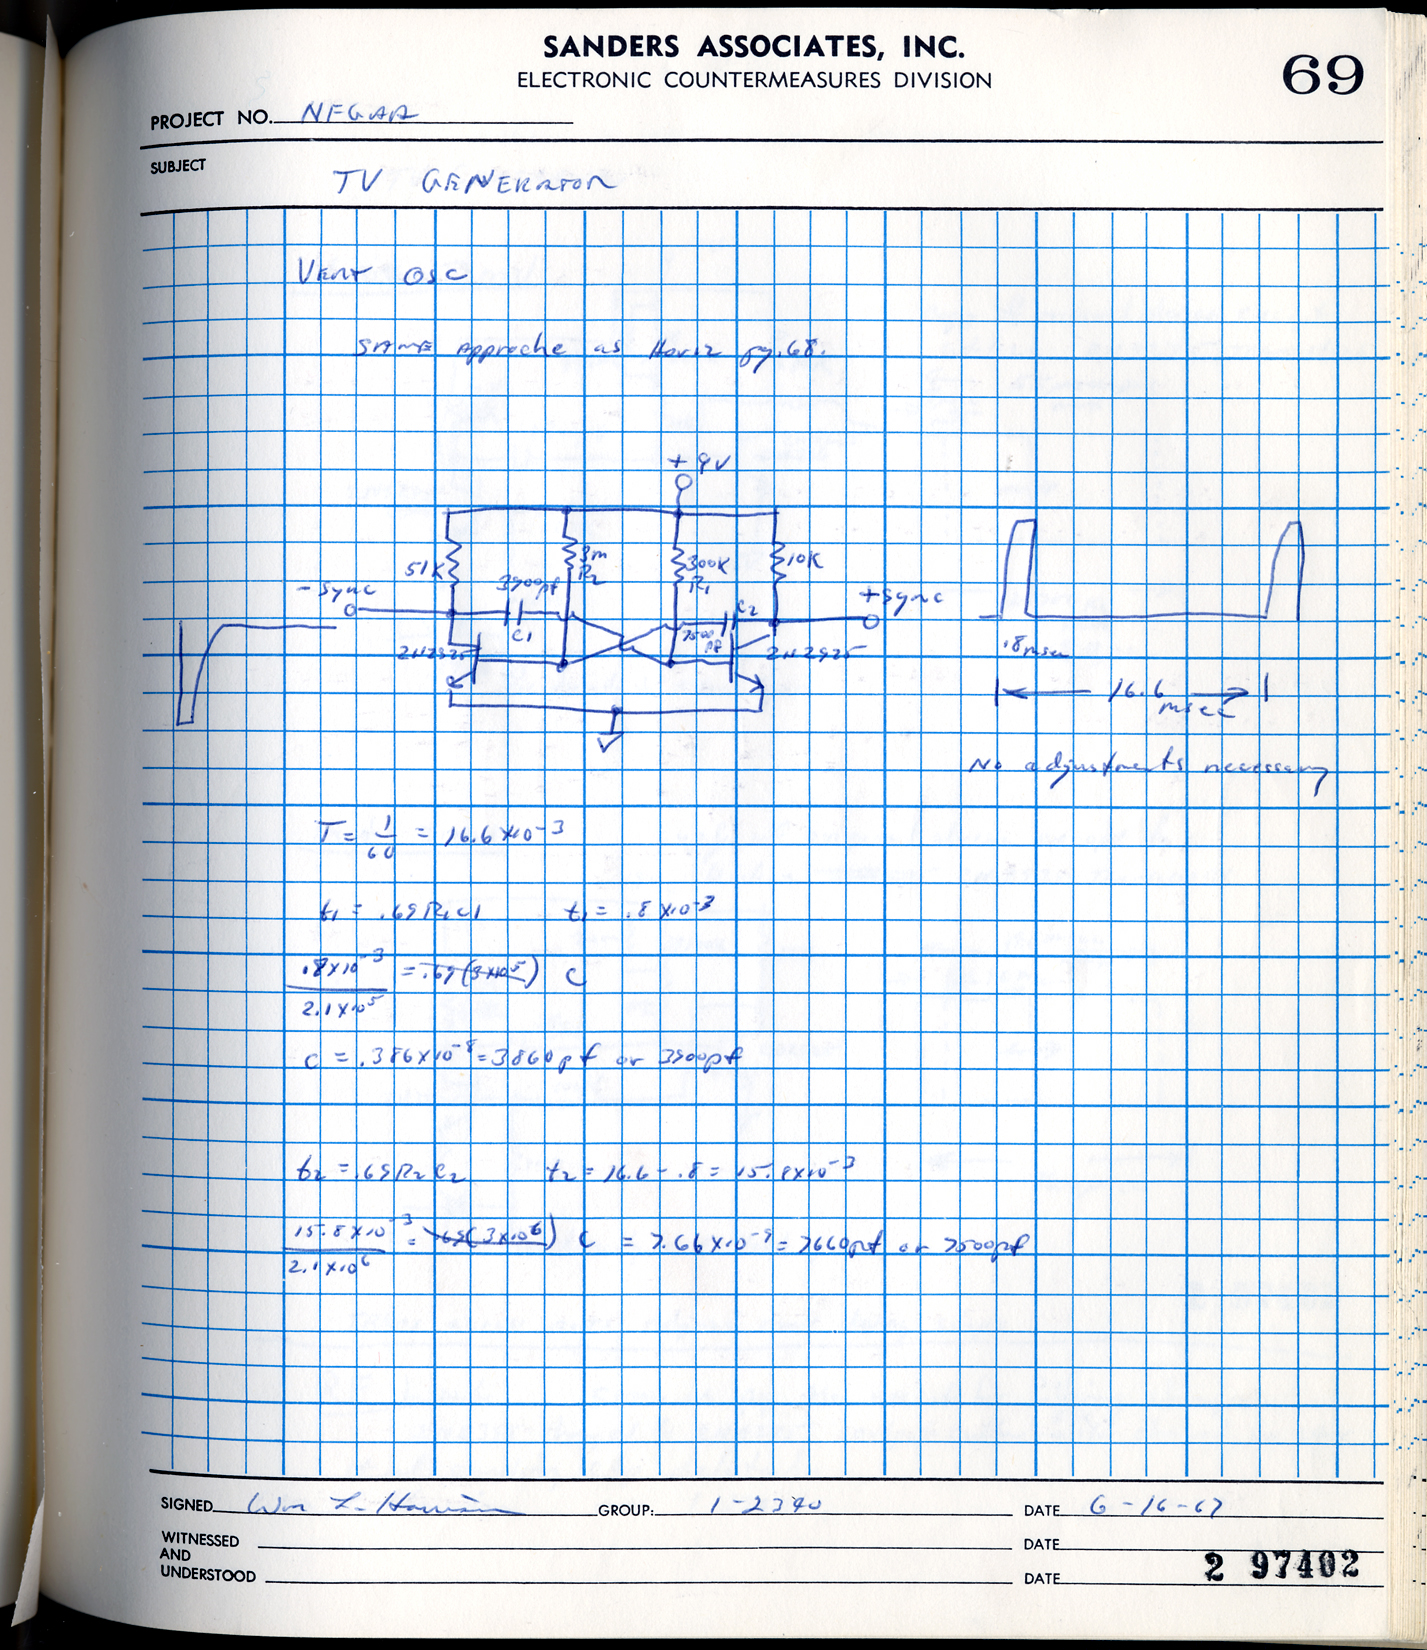 SANDERS ASSOCIATES, INC.
ELECTRONIC COUNTERMEASURES DIVISION
69
PROJECT NO.
SUBJECT
TV GENERATOR
VERT OSC
SAME Approche as Horiz pg. 68.
+9V
51K
3m
R2
300K
R1
10K
- sync
3900pf
C1
C2
7500
pf
+sync
2N2925
2N2925
.8msec
16.6
msec
No adjustments necessary
T = 1/60 = 16.6 x10-3
t1 = .69 R1 C1 t1 = .8 x10-3
.8x10-3 = .69 (3x105) C
2.1x105
C = .386x10-8 = 3860pf or 3900pf
t2 = .69 R2 C2 t2 = 16.6 - .8 = 15.8x10-3
15.8x10-3 = .69 (3x106) C = 7.66x10-9 = 7660pf or 7500pf
2.1x106
SIGNED Wm L. Harrison GROUP: 1-2390 DATE 6-16-67
WITNESSED
AND
UNDERSTOOD
DATE
DATE
2 97402